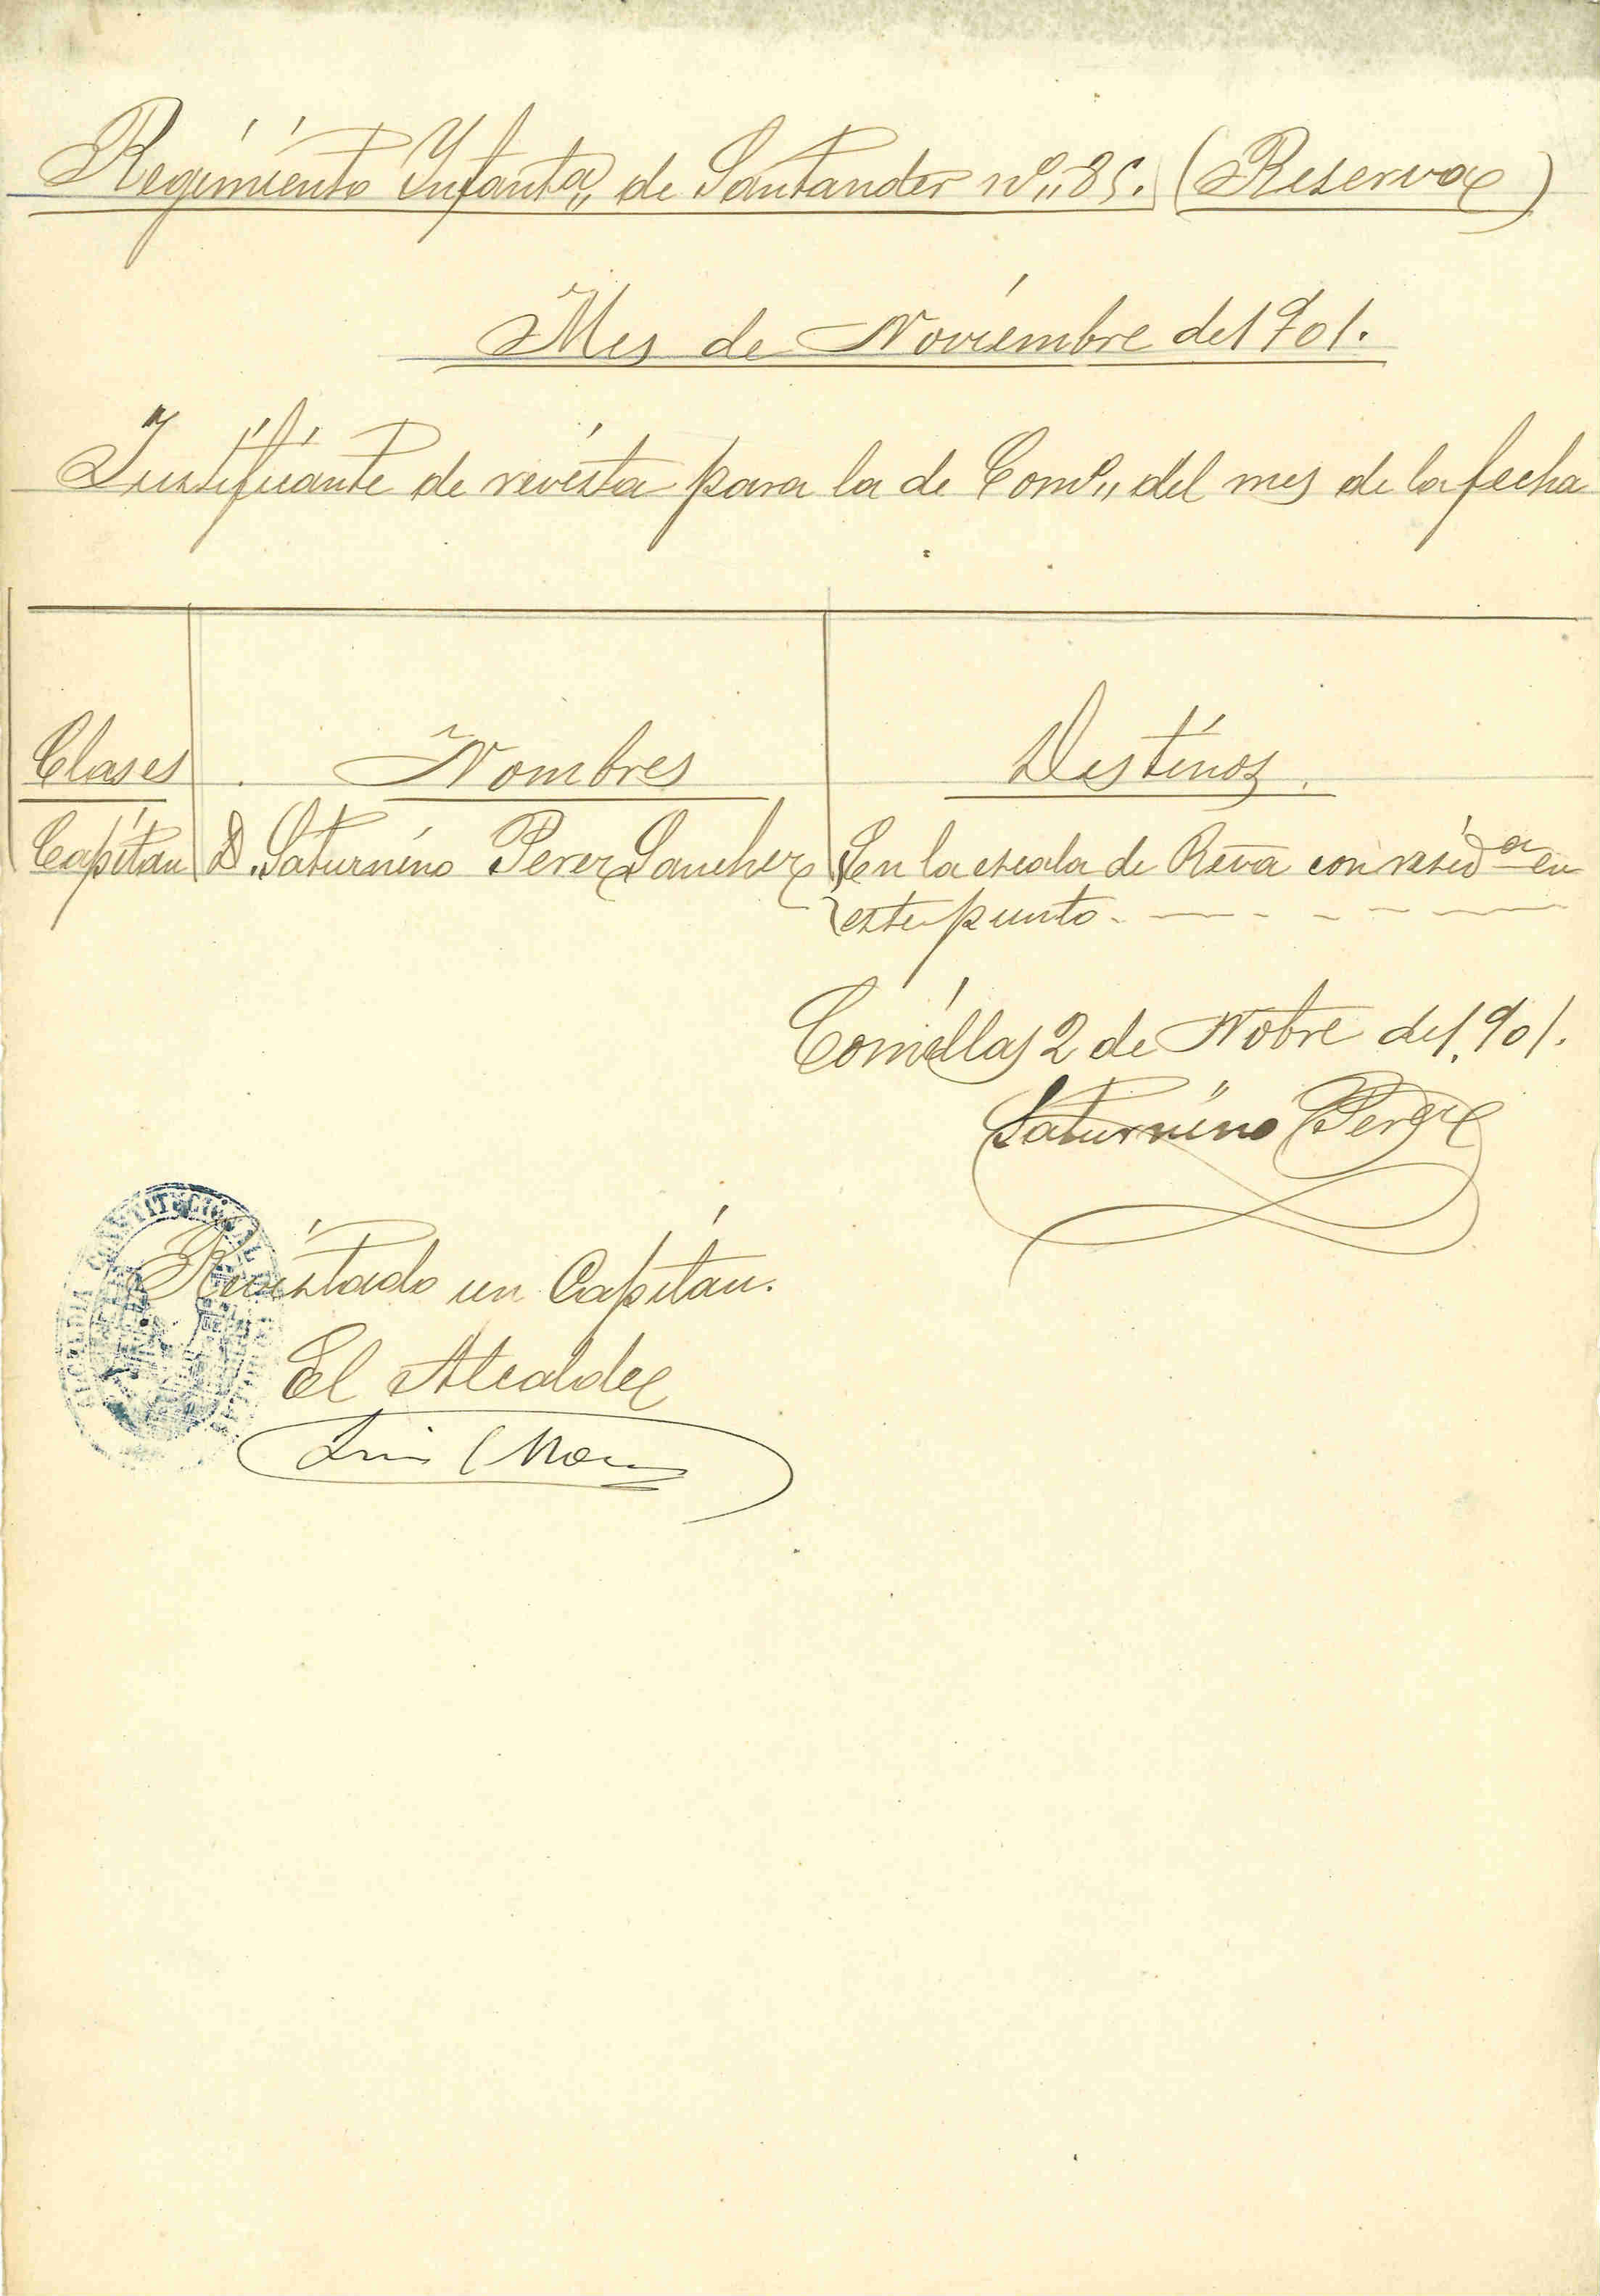 Regimiento Infantª,, de Santander nº,, 85. (Reserva)
Mes de Noviembre de 1901.
Justificante de revista para la de Comº,, del mes de la fecha
Clases Nombres Destinos.
Capitan D. Saturnino Perez Sanchez En la escala de Rva con residª en
este punto.
Comillas 2 de Nobre de 1.901.
Saturnino Perez
Revistado un Capitan.
El Alcalde
Luis
ALCALDIA CONSTITUCIONAL